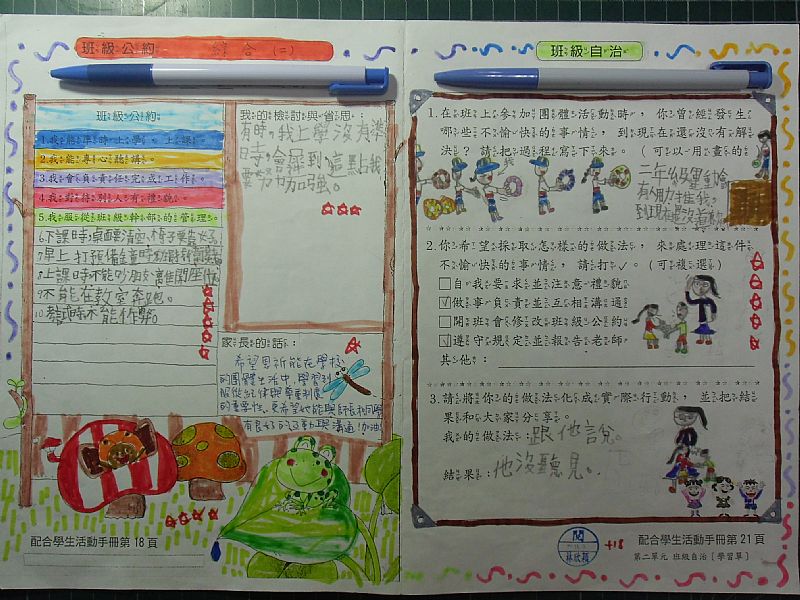 班級公約
綜合(二)
班級公約
1.我能準時上學、上課。
2.我能專心聽講。
3.我會負責任完成工作。
4.我對待別人有禮貌。
5.我服從班級幹部的管理。
6.下課時,桌面要清空、椅子要靠
7.早上打預備鐘時
8.上課時不能吵朋友
9.不能在教室奔跑。
10.考試時不能作弊。
我的檢討與省思:
有時,我上學沒有準
時,會遲到,這點我
要努力加強。
家長的話:
希望恩祈能在學校
的團體生活中,學習到
服從紀律與尊重制度
的重要性、更希望她能與師長和同學
有良好的互動與溝通!加油!
配合學生活動手冊第18頁
班級自治
1.在班上參加團體活動時,你曾經發生
哪些不愉快的事情,到現在還沒有解
決?請把過程寫下來。(可以用畫的)
我
二年級
有人用力推我。
到現在還沒道歉
2.你希望採取怎樣的做法,來處理這件
不愉快的事情,請打✓。(可複選)
□自我要求並注意禮貌
☑做事負責並互相溝通
□開班會修改班級公約
☑遵守規定並報告老師
其他:
3.請將你的做法化成實際行動,並把結
果和大家分享。
我的做法:跟他說。
結果:他沒聽見。
閱
林欣穎
+18
配合學生活動手冊第21頁
第二單元 班級自治〔學習單〕